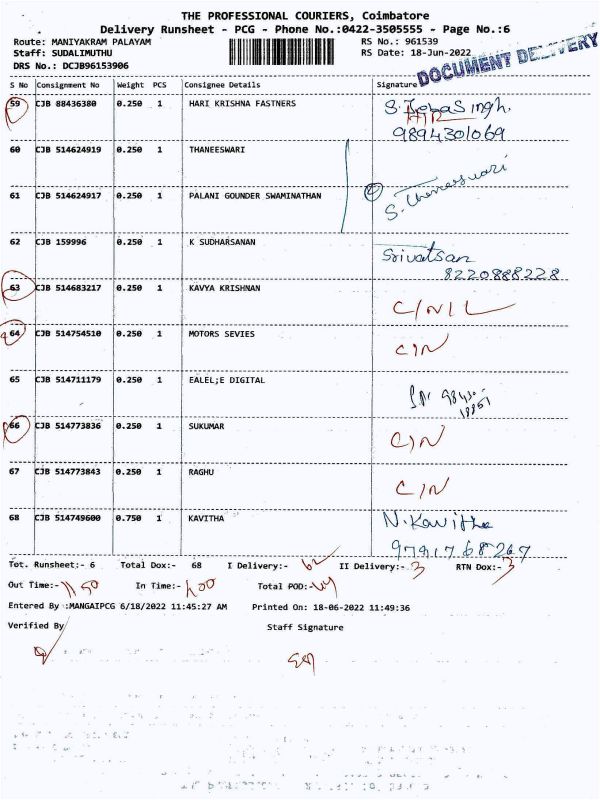 THE PROFESSIONAL COURIERS, Coimbatore
Delivery Runsheet - PCG - Phone No.:0422-3505555 - Page No.:6
Route: MANIYAKRAM PALAYAM RS No.: 961539
Staff: SUDALIMUTHU RS Date: 18-Jun-2022
DRS No.: DCJB96153906 DOCUMENT DELIVERY
S No Consignment No Weight PCS Consignee Details Signature
59 CJB 88436380 0.250 1 HARI KRISHNA FASTNERS
9894301069
60 CJB 514624919 0.250 1 THANEESWARI
61 CJB 514624917 0.250 1 PALANI GOUNDER SWAMINATHAN S. Thaneeswari
62 CJB 159996 0.250 1 K SUDHARSANAN Srivatsan
8220888228
63 CJB 514683217 0.250 1 KAVYA KRISHNAN C/N/L
64 CJB 514754510 0.250 1 MOTORS SEVIES C/N
65 CJB 514711179 0.250 1 EALEL;E DIGITAL
66 CJB 514773836 0.250 1 SUKUMAR C/N
67 CJB 514773843 0.250 1 RAGHU C/N
68 CJB 514749600 0.750 1 KAVITHA N. Kavitha
9791768267
Tot. Runsheet:- 6 Total Dox:- 68 I Delivery:- 62 II Delivery:- 3 RTN Dox:- 3
Out Time:- 1150 In Time:- 400 Total POD:-
Entered By :MANGAIPCG 6/18/2022 11:45:27 AM Printed On: 18-06-2022 11:49:36
Verified By Staff Signature